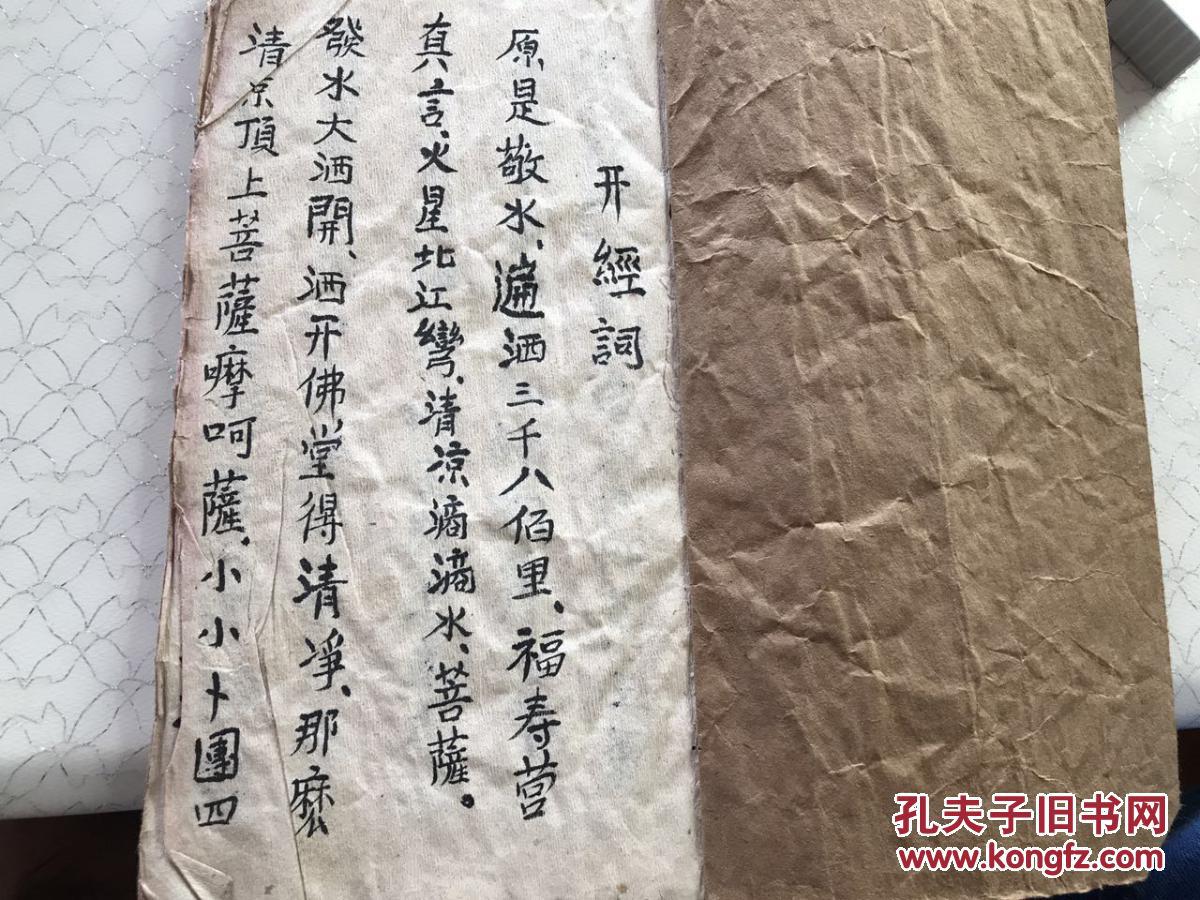 开經詞
原是敬水、遍洒三千八佰里、福寿营
真言、火星北江彎、清凉滴滴水、菩薩。
發水大洒開、洒开佛堂得清凈、那麽
清凉頂上菩薩嚤呵薩、小小卜團四
孔夫子旧书网
www.kongfz.com